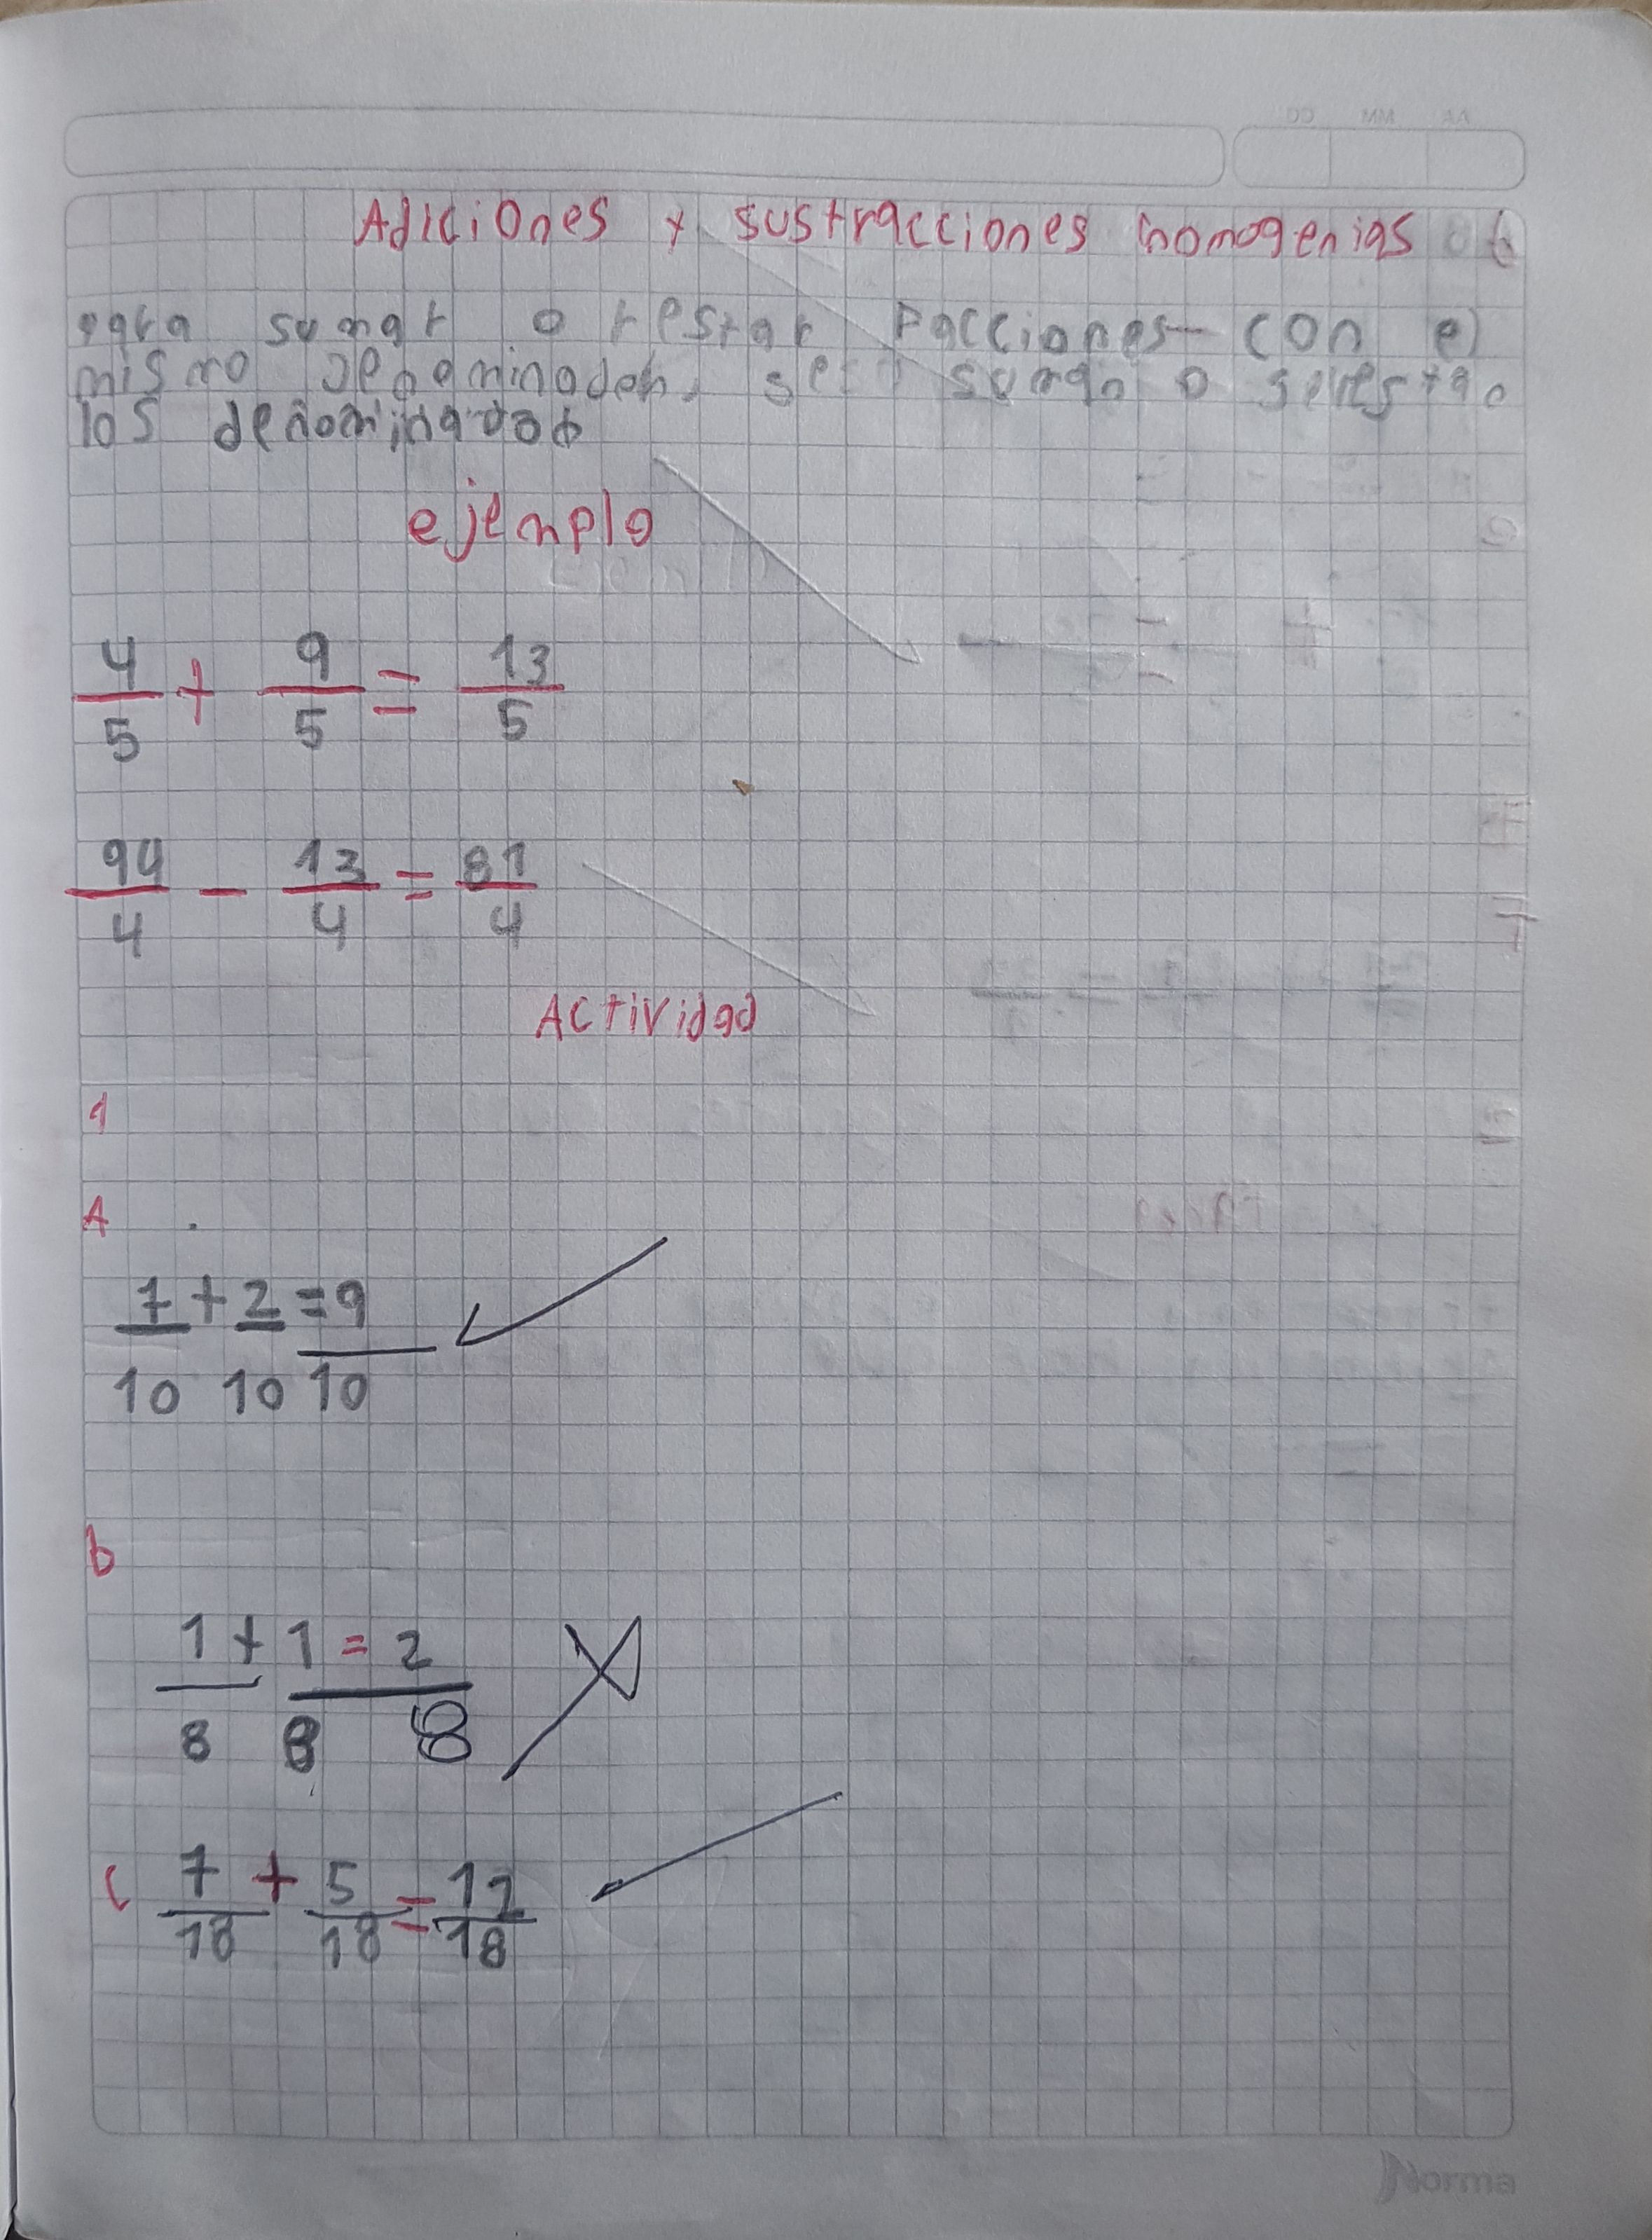 AA MM DD
Adiciones y sustracciones homogenias
para sumar o restar Facciones con el
mismo denominador, se suman o se restan
los denominador
ejemplo
4/5 + 9/5 = 13/5
94/4 - 13/4 = 81/4
Actividad
1
A
7/10 + 2/10 = 9/10
b
1/8 + 1/8 = 2/8
c 7/18 + 5/18 = 12/18
Norma